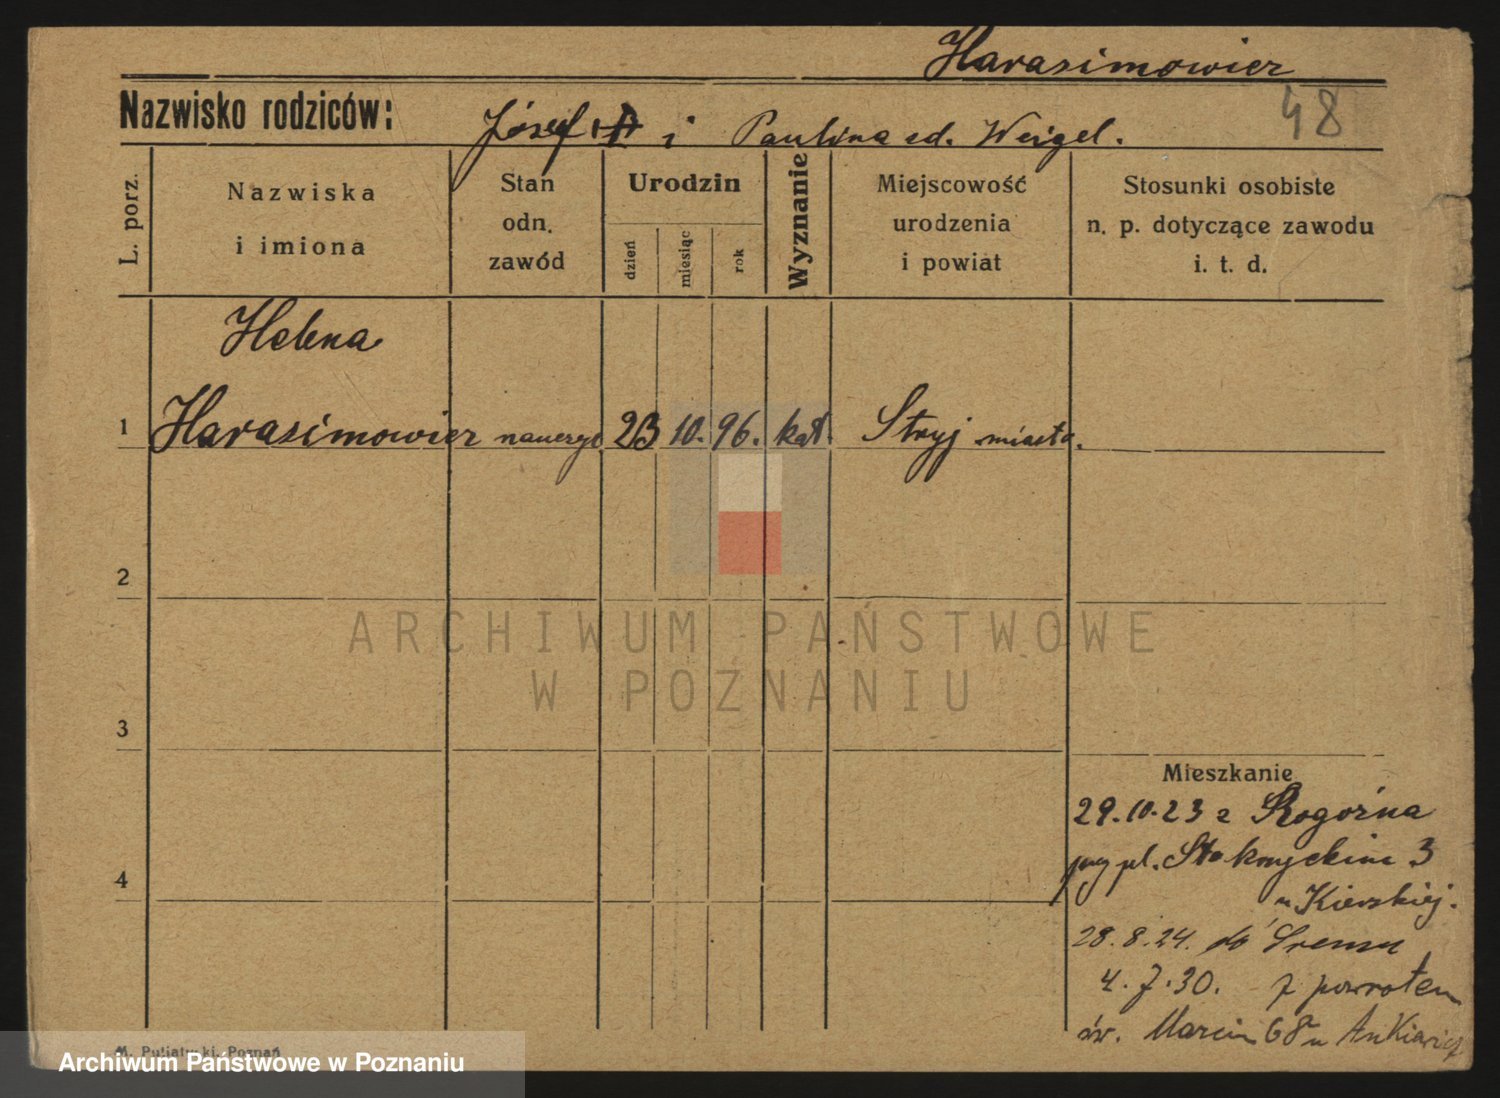 Harasimowicz
48
Nazwisko rodziców: Józef i Paulina zd. Weigel.
L. porz.
Nazwiska i imiona
Stan odn. zawód
Urodzin
dzień
miesiąc
rok
Wyznanie
Miejscowość urodzenia i powiat
Stosunki osobiste n. p. dotyczące zawodu i. t. d.
Helena
1 Harasimowicz nauczyc 23 10. 96. kat. Stryj miasto.
2
ARCHIWUM PAŃSTWOWE
W POZNANIU
3
Mieszkanie
29.10.23 z Rogoźna
przy pl. 3
4
u Kierskiej.
28.8.24. do Śremu
4.7.30. z powrotem
św. Marcin 68 u Ankiewicz
M. Putiatycki, Poznań
Archiwum Państwowe w Poznaniu